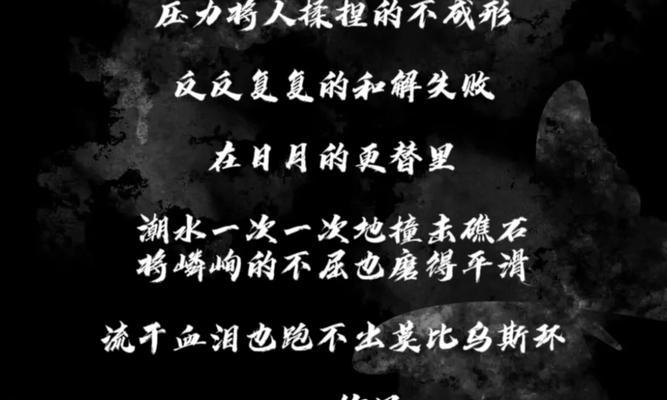 压力将人揉捏的不成形
反反复复的和解失败
在日月的更替里
潮水一次一次地撞击礁石
将嶙峋的不屈也磨得平滑
流干血泪也跑不出莫比乌斯环